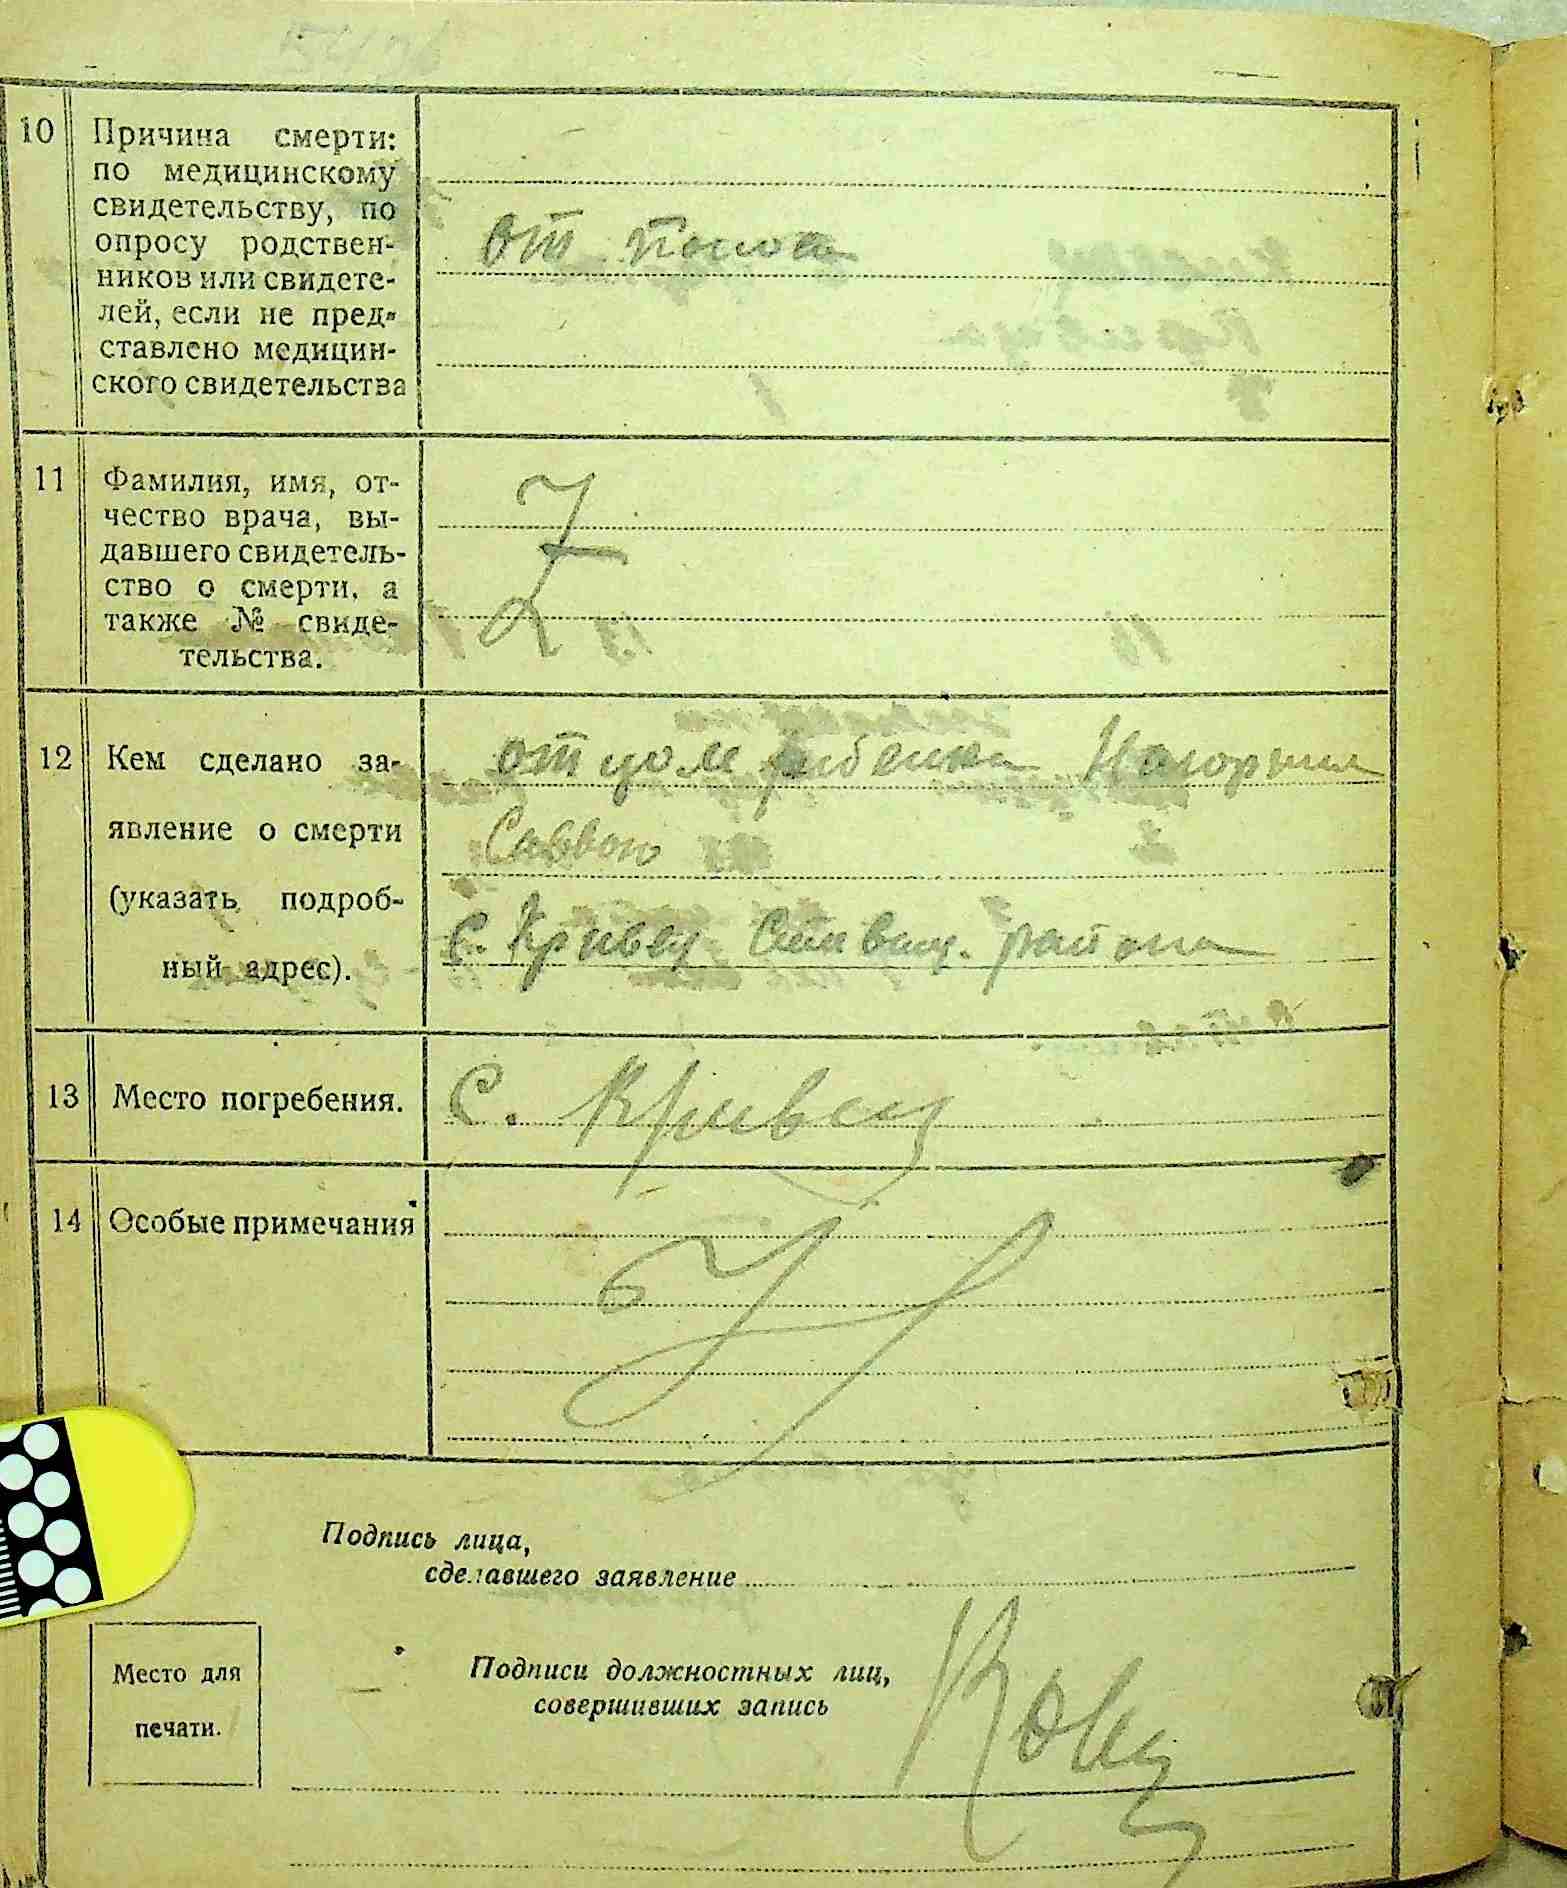 10 Причина смерти:
по медицинскому
свидетельству, по
опросу родствен-
ников или свидете-
лей, если не пред-
ставлено медицин-
ского свидетельства
от поноса
11 Фамилия, имя, от-
чество врача, вы-
давшего свидетель-
ство о смерти, а
также № свиде-
тельства.
Z
12 Кем сделано за-
явление о смерти
(указать подроб-
ный адрес).
отцом ребенка Нагорным
Саввою
с. Кривец Ставищ. района
13 Место погребения.
с. Кривец
14 Особые примечания
Подпись лица,
сделавшего заявление
Место для
печати.
Подписи должностных лиц,
совершивших запись